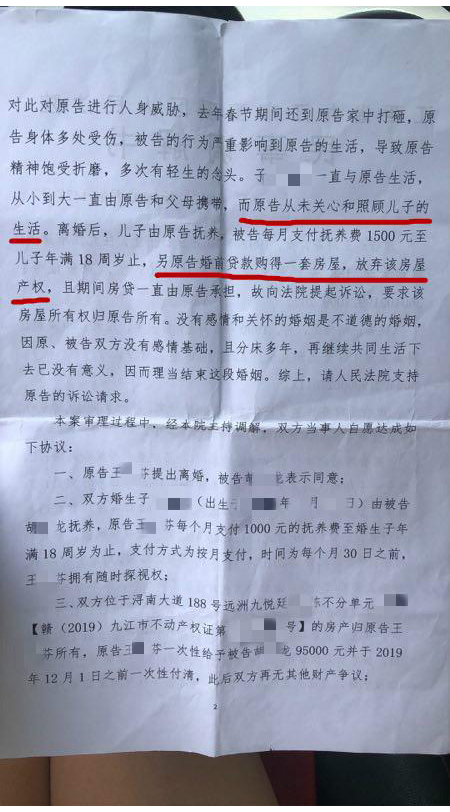 对此对原告进行人身威胁，去年春节期间还到原告家中打砸，原
告身体多处受伤，被告的行为严重影响到原告的生活，导致原告
精神饱受折磨，多次有轻生的念头。子 一直与原告生活，
从小到大一直由原告和父母携带，而原告从未关心和照顾儿子的
生活。离婚后，儿子由原告抚养，被告每月支付抚养费1500元至
儿子年满18周岁止，另原告婚前贷款购得一套房屋，放弃该房屋
产权，且期间房贷一直由原告承担，故向法院提起诉讼，要求该
房屋所有权归原告所有。没有感情和关怀的婚姻是不道德的婚姻，
因原、被告双方没有感情基础，且分床多年，再继续共同生活下
去已没有意义，因而理当结束这段婚姻。综上，请人民法院支持
原告的诉讼请求。
本案审理过程中，经本院主持调解，双方当事人自愿达成如
下协议：
一、原告王 芬提出离婚，被告 龙表示同意；
二、双方婚生子 （出生于 年 月 日）由被告
胡 龙抚养，原告王 芬每个月支付1000元的抚养费至婚生子年
满18周岁为止，支付方式为按月支付，时间为每个月30日之前，
王 芬拥有随时探视权；
三、双方位于浔南大道188号远洲九悦廷 栋不分单元
【赣（2019）九江市不动产权证第 号】的房产归原告王
芬所有，原告王 芬一次性给予被告胡 龙95000元并于2019
年12月1日之前一次性付清，此后双方再无其他财产争议；
2